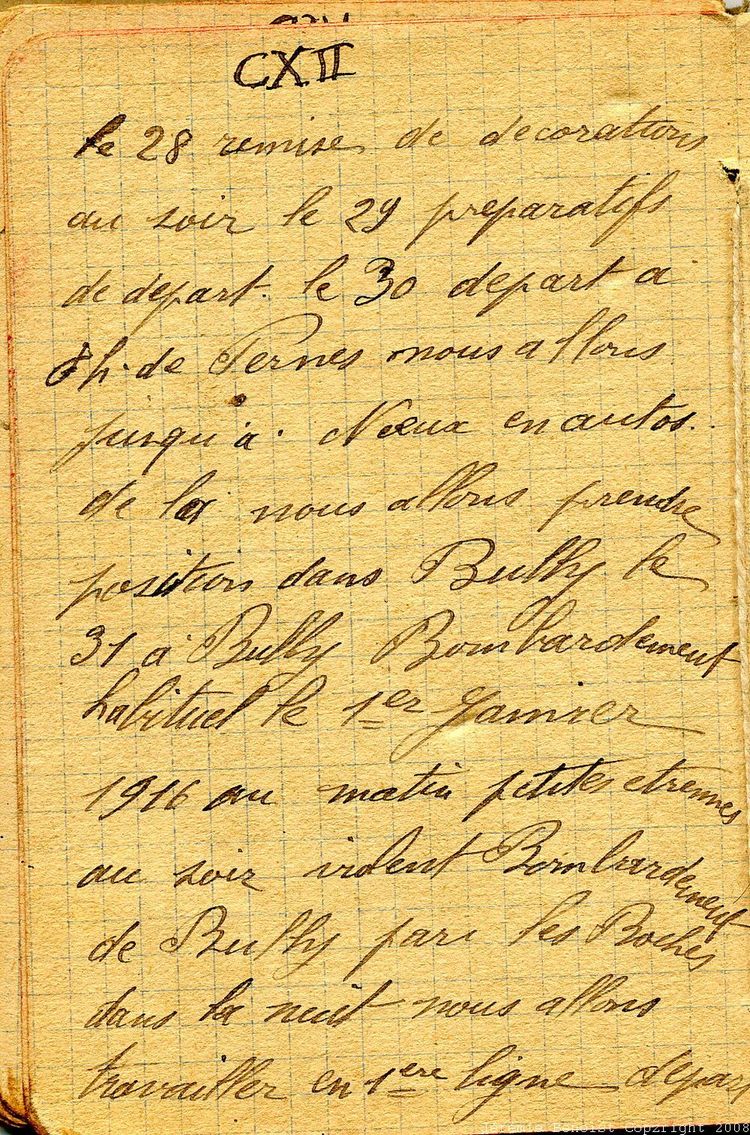 CXII
le 28 remise de decorations
au soir le 29 preparatifs
de depart. le 30 depart a
h. de Pernes nous allons
jusqu'a. Nœux en autos.
de la nous allons prendre
position dans Bully le
31 a Bully Bombardement
habituel le 1er Janvier
1916 au matin petites etrennes
au soir violent Bombardement
de Bully par les Boches
dans la nuit nous allons
travailler en 1ere ligne depart
Jeremie Benoist Copyright 2008